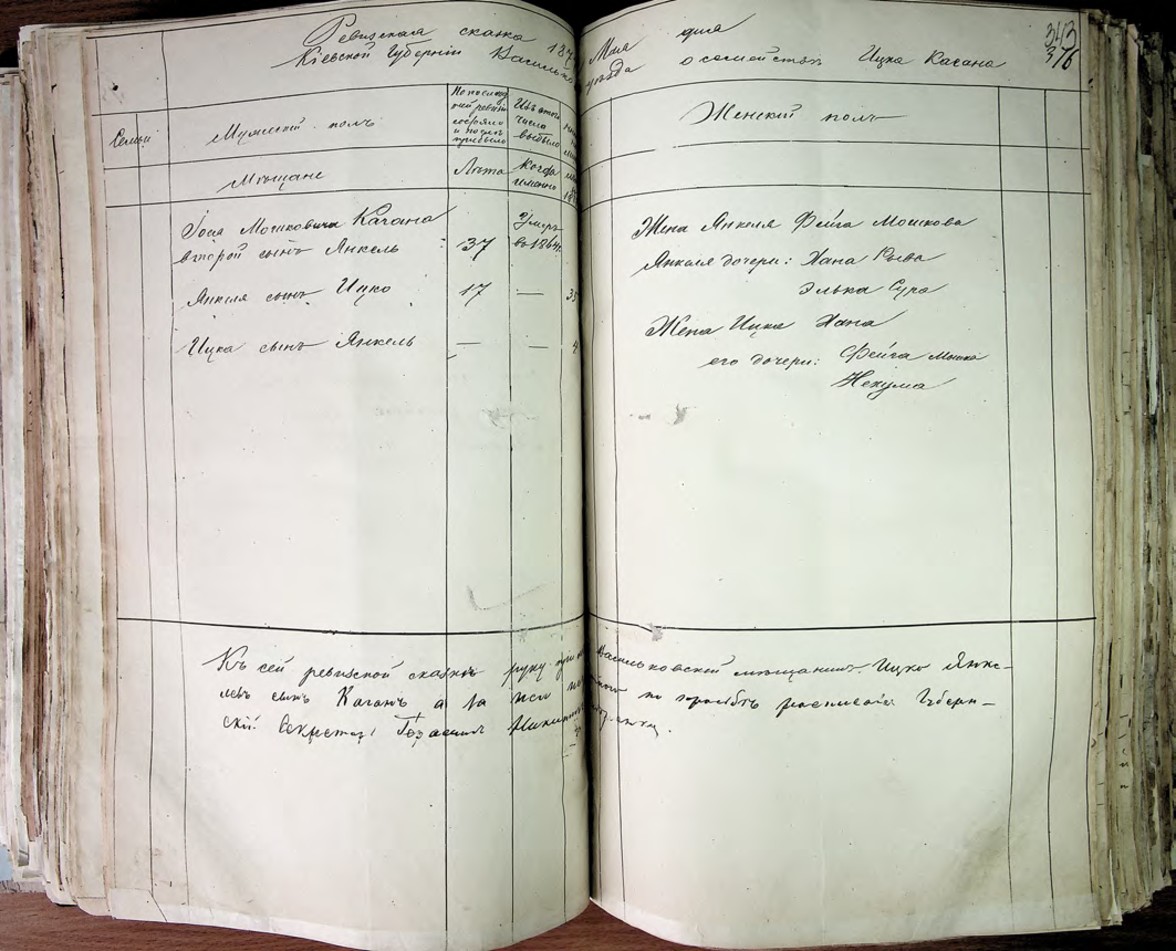 343
376
Ревизская сказка 187
Мая дня
Кіевской Губерніи Васильков
уѣзда о семействѣ Ицка Кагана
Семьи
Мужскій полъ
По послѣд
ней ревизіи
состояло
и послѣ
прибыло
Изъ этого
числа
выбыло
Женскій полъ
Мѣщане
Лѣта
Когда
именно
Мошковича Кагана
второй сынъ Янкель
37
Умеръ
въ 1864г.
Янкеля сынъ Ицко
17
—
35
Ицка сынъ Янкель
—
—
4
Жена Янкеля Фейга Мошкова
Янкеля дочери: Хана Рыва
Элька Сура
Жена Ицка Хана
его дочери: Фейга
Нехума
Къ сей ревизской сказкѣ руку Васильковскій мѣщанинъ Ицко Янке-
левъ сынъ Каганъ а за него по просьбѣ росписался Губерн-
скій Секретарь